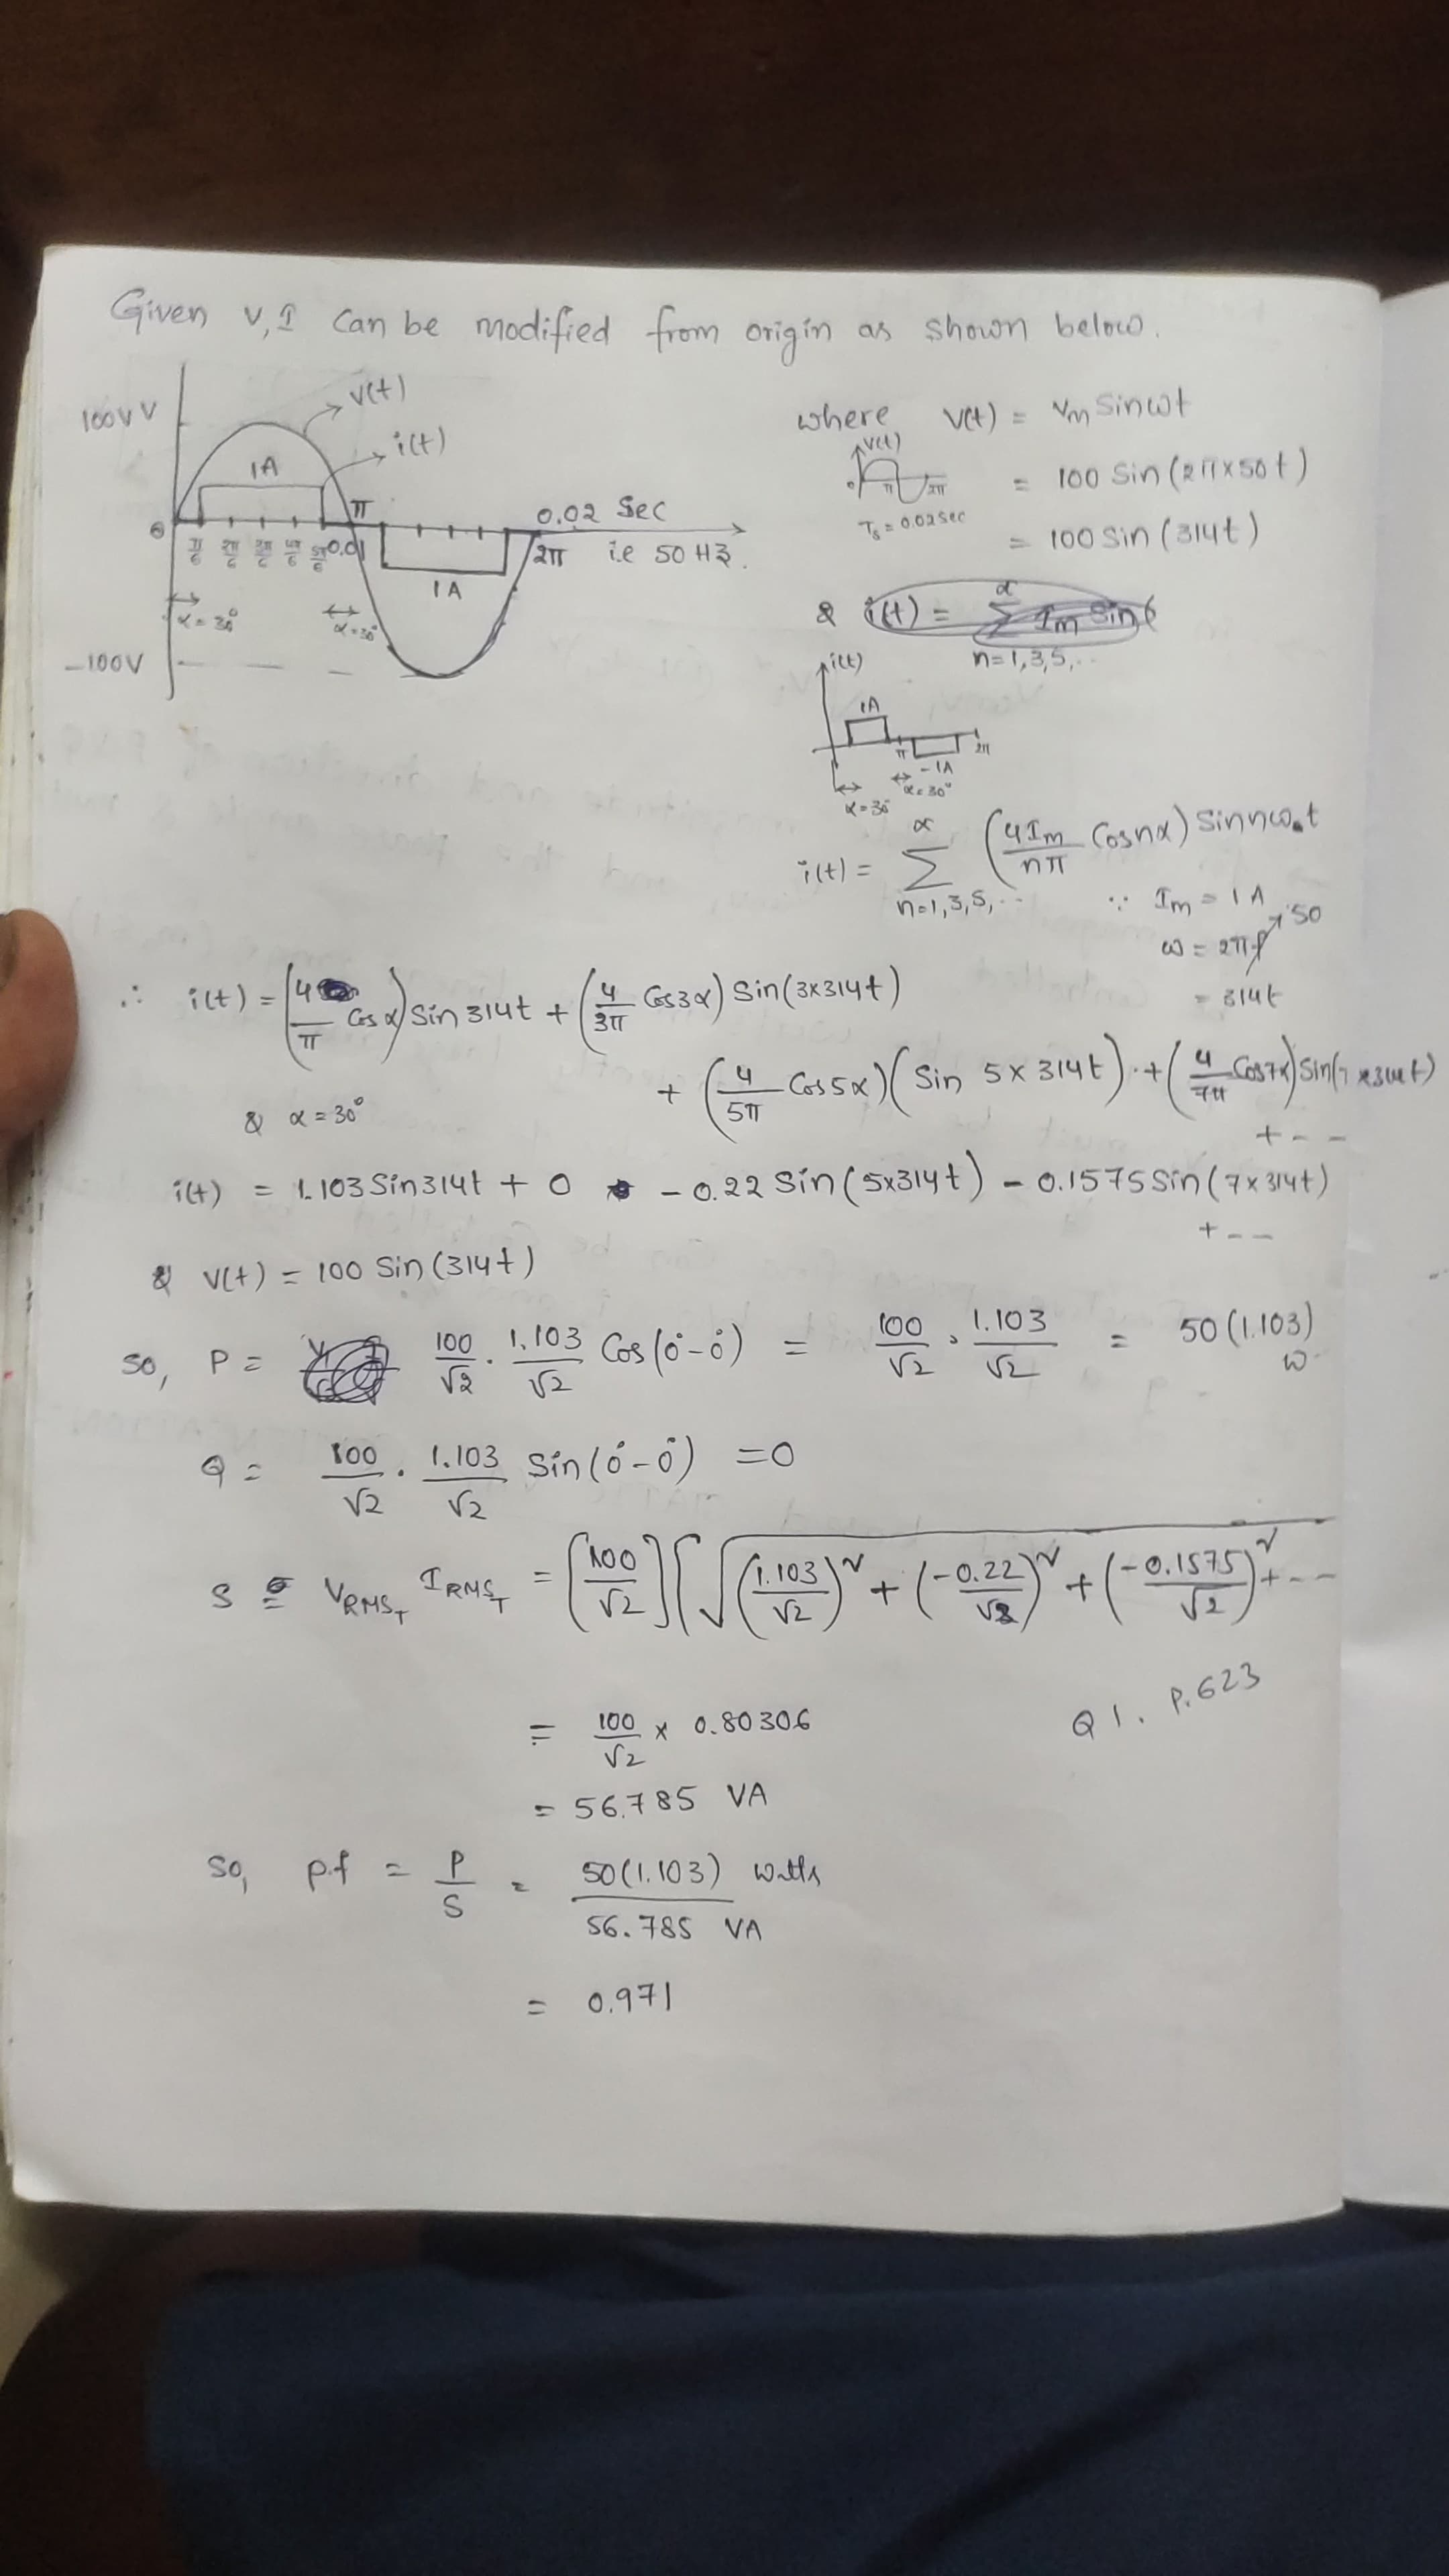 Given V, I can be modified from origin as shown below.
100V V
v(t)
i(t)
1A
0
π/6 2π/6 3π/6 4π/6 5π/6 0.01
π
0.02 Sec
2π i.e 50 Hz.
1A
α = 30°
α = 30°
-100V
where V(t) = Vm Sinωt
V(t)
0 π 2π
Ts = 0.02 Sec
= 100 Sin(2π×50t)
= 100 Sin(314t)
& i(t) = ∑ Im Sin(
α
n=1,3,5,..
i(t)
1A
π 2π
-1A
α = 30°
α = 30°
i(t) = ∑ (4Im/nπ Cosnα) Sinnω₀t
α
n=1,3,5,..
∵ Im = 1A
ω = 2πf → 50
= 314t
∴ i(t) = (4/π Cosα) Sin314t + (4/3π Cos3α) Sin(3×314t)
+ (4/5π Cos5α)(Sin 5×314t) + (4/7π Cos7α) Sin(7×314t)
+ - -
& α = 30°
i(t) = 1.103 Sin314t + 0 - 0.22 Sin(5×314t) - 0.1575 Sin(7×314t)
+ - -
& V(t) = 100 Sin(314t)
So, P = 100/√2 . 1.103/√2 Cos(0°-0°) = 100/√2 . 1.103/√2 = 50(1.103) W
Q = 100/√2 . 1.103/√2 Sin(0°-0°) = 0
S = VRMST IRMST = [100/√2][√(1.103/√2)² + (-0.22/√2)² + (-0.1575/√2)² + - -
= 100/√2 × 0.80306
Q 1. P.623
= 56.785 VA
So, pf = P/S = 50(1.103) watts / 56.785 VA
= 0.971